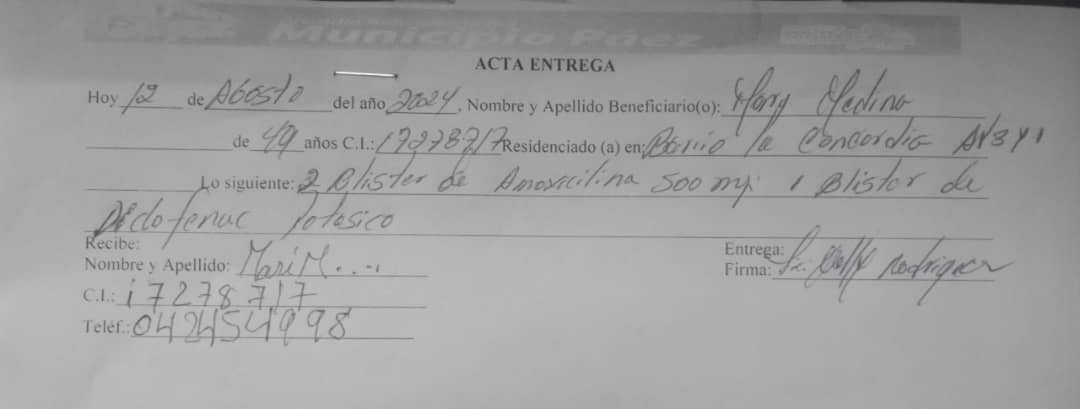 Municipio Páez
ACTA ENTREGA
Hoy 12 de Agosto del año 2024, Nombre y Apellido Beneficiario(o): Mary Medina
de 49 años C.I.: 17278717 Residenciado (a) en: Barrio la Concordia AV3 y 1
Lo siguiente: 2 Blister de Amoxicilina 500 mg. 1 Blister de
Diclofenac Potasico
Recibe:
Nombre y Apellido: Mari M....
C.I.: 17278717
Teléf.: 0424254998
Entrega:
Firma: Rodriguez